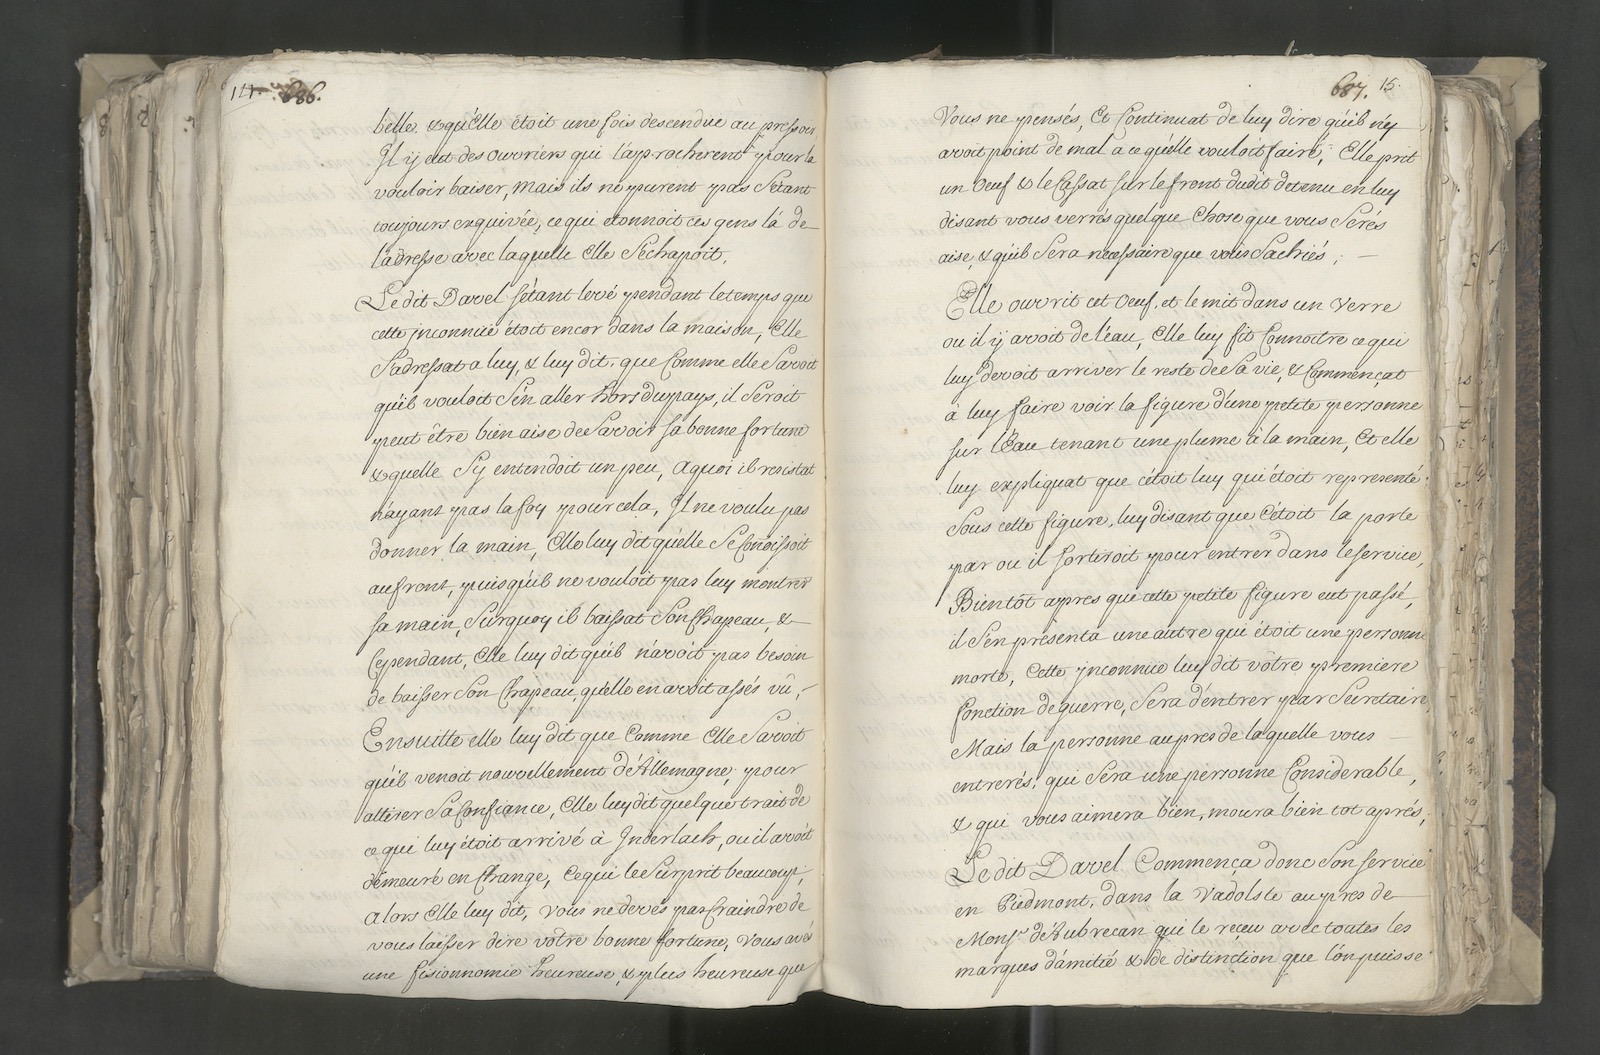 14. 686.
belle. & qu'Elle étoit une fois descendue au pressoir
Il y eut des ouvriers qui l'aprocherent pour la
vouloir baiser, mais ils ne purent pas S'étant
toujours exquivée, ce qui etonnoit ces gens là de
l'adresse avec laquelle Elle S'echapoit.
Le dit Davel s'étant levé pendant le temps que
cette jnconnüe étoit encor dans la maison, Elle
S'adressat a luy, & luy dit. que Comme elle Savoit
qu'il vouloit S'en aller hors du pays, il Seroit
peut être bien aise de Savoir sa bonne fortune
& qu'elle S'y entendoit un peu, a quoi il resistat
n'ayant pas la foy pour cela, Il ne voulu pas
donner la main, Elle luy dit qu'elle Se Conoissoit
au front, puis qu'il ne vouloit pas luy montrer
sa main, Surquoy il baissat Son Chapeau, &
Cependant, Elle luy dit qu'il n'avoit pas besoin
de baisser Son Chapeau, qu'elle en avoit assés vû,
Ensuitte elle luy dit que Comme Elle Savoit
qu'il venoit nouvellement d'Allemagne, pour
attirer Sa Confiance, Elle luy dit quelque trait de
ce qui luy étoit arrivé à Jnderlach, ou il avoit
démeuré en Change, Ce qui le Surprit beaucoup,
alors Elle luy dit, vous ne devés pas Craindre de
vous laisser dire vôtre bonne fortune, vous avés
une fisionnomie heureuse, & plus heureuse que
687. 15.
Vous ne pensés, Et Continuat de luy dire qu'il n'y
avoit point de mal a ce qu'elle vouloit faire, Elle prit
un Oeuf & le Cassat sur le front dudit detenu en luy
disant vous verrés quelque Chose que vous Serés
aise, & qu'il Sera necessaire que vous Sachiés,
Elle ouvrit cet Oeuf, et le mit dans un Verre
ou il y avoit de l'eau, Elle luy fit Connoitre ce qui
luy devoit arriver le reste de Sa vie, & Commençat
à luy faire voir la figure d'une petite personne
sur l'Eau tenant une plume à la main, Et elle
luy expliquat que c'étoit luy qui étoit representé
Sous cette figure, luy disant que C'étoit la porte
par ou il sortiroit pour entrer dans le service,
Bientôt apres que cette petite figure eut passé,
il S'en présenta une autre qui étoit une personne
morte, Cette jnconnüe luy dit vôtre premiere
fonction de guerre, Sera d'entrer par Secretaire,
Mais la personne aupres de laquelle vous
entrerés, qui Sera une personne Considerable,
& qui vous aimera bien, moura bien tot aprés,
Le dit Davel Commença donc Son service
en Piedmont, dans la Vadolste aupres de
Monsr. d'Aubrecan qui le reçeu avec toutes les
marques d'amitié & de distinction que l'on puisse